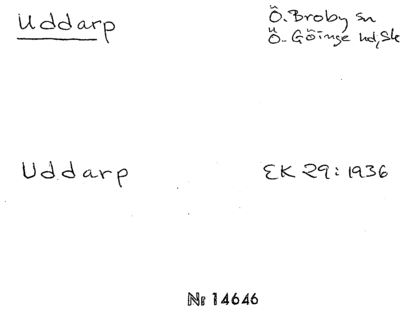 Uddarp
Ö. Broby sn
Ö. Göinge hd, Sk
Uddarp
EK 29: 1936
Nr 14646